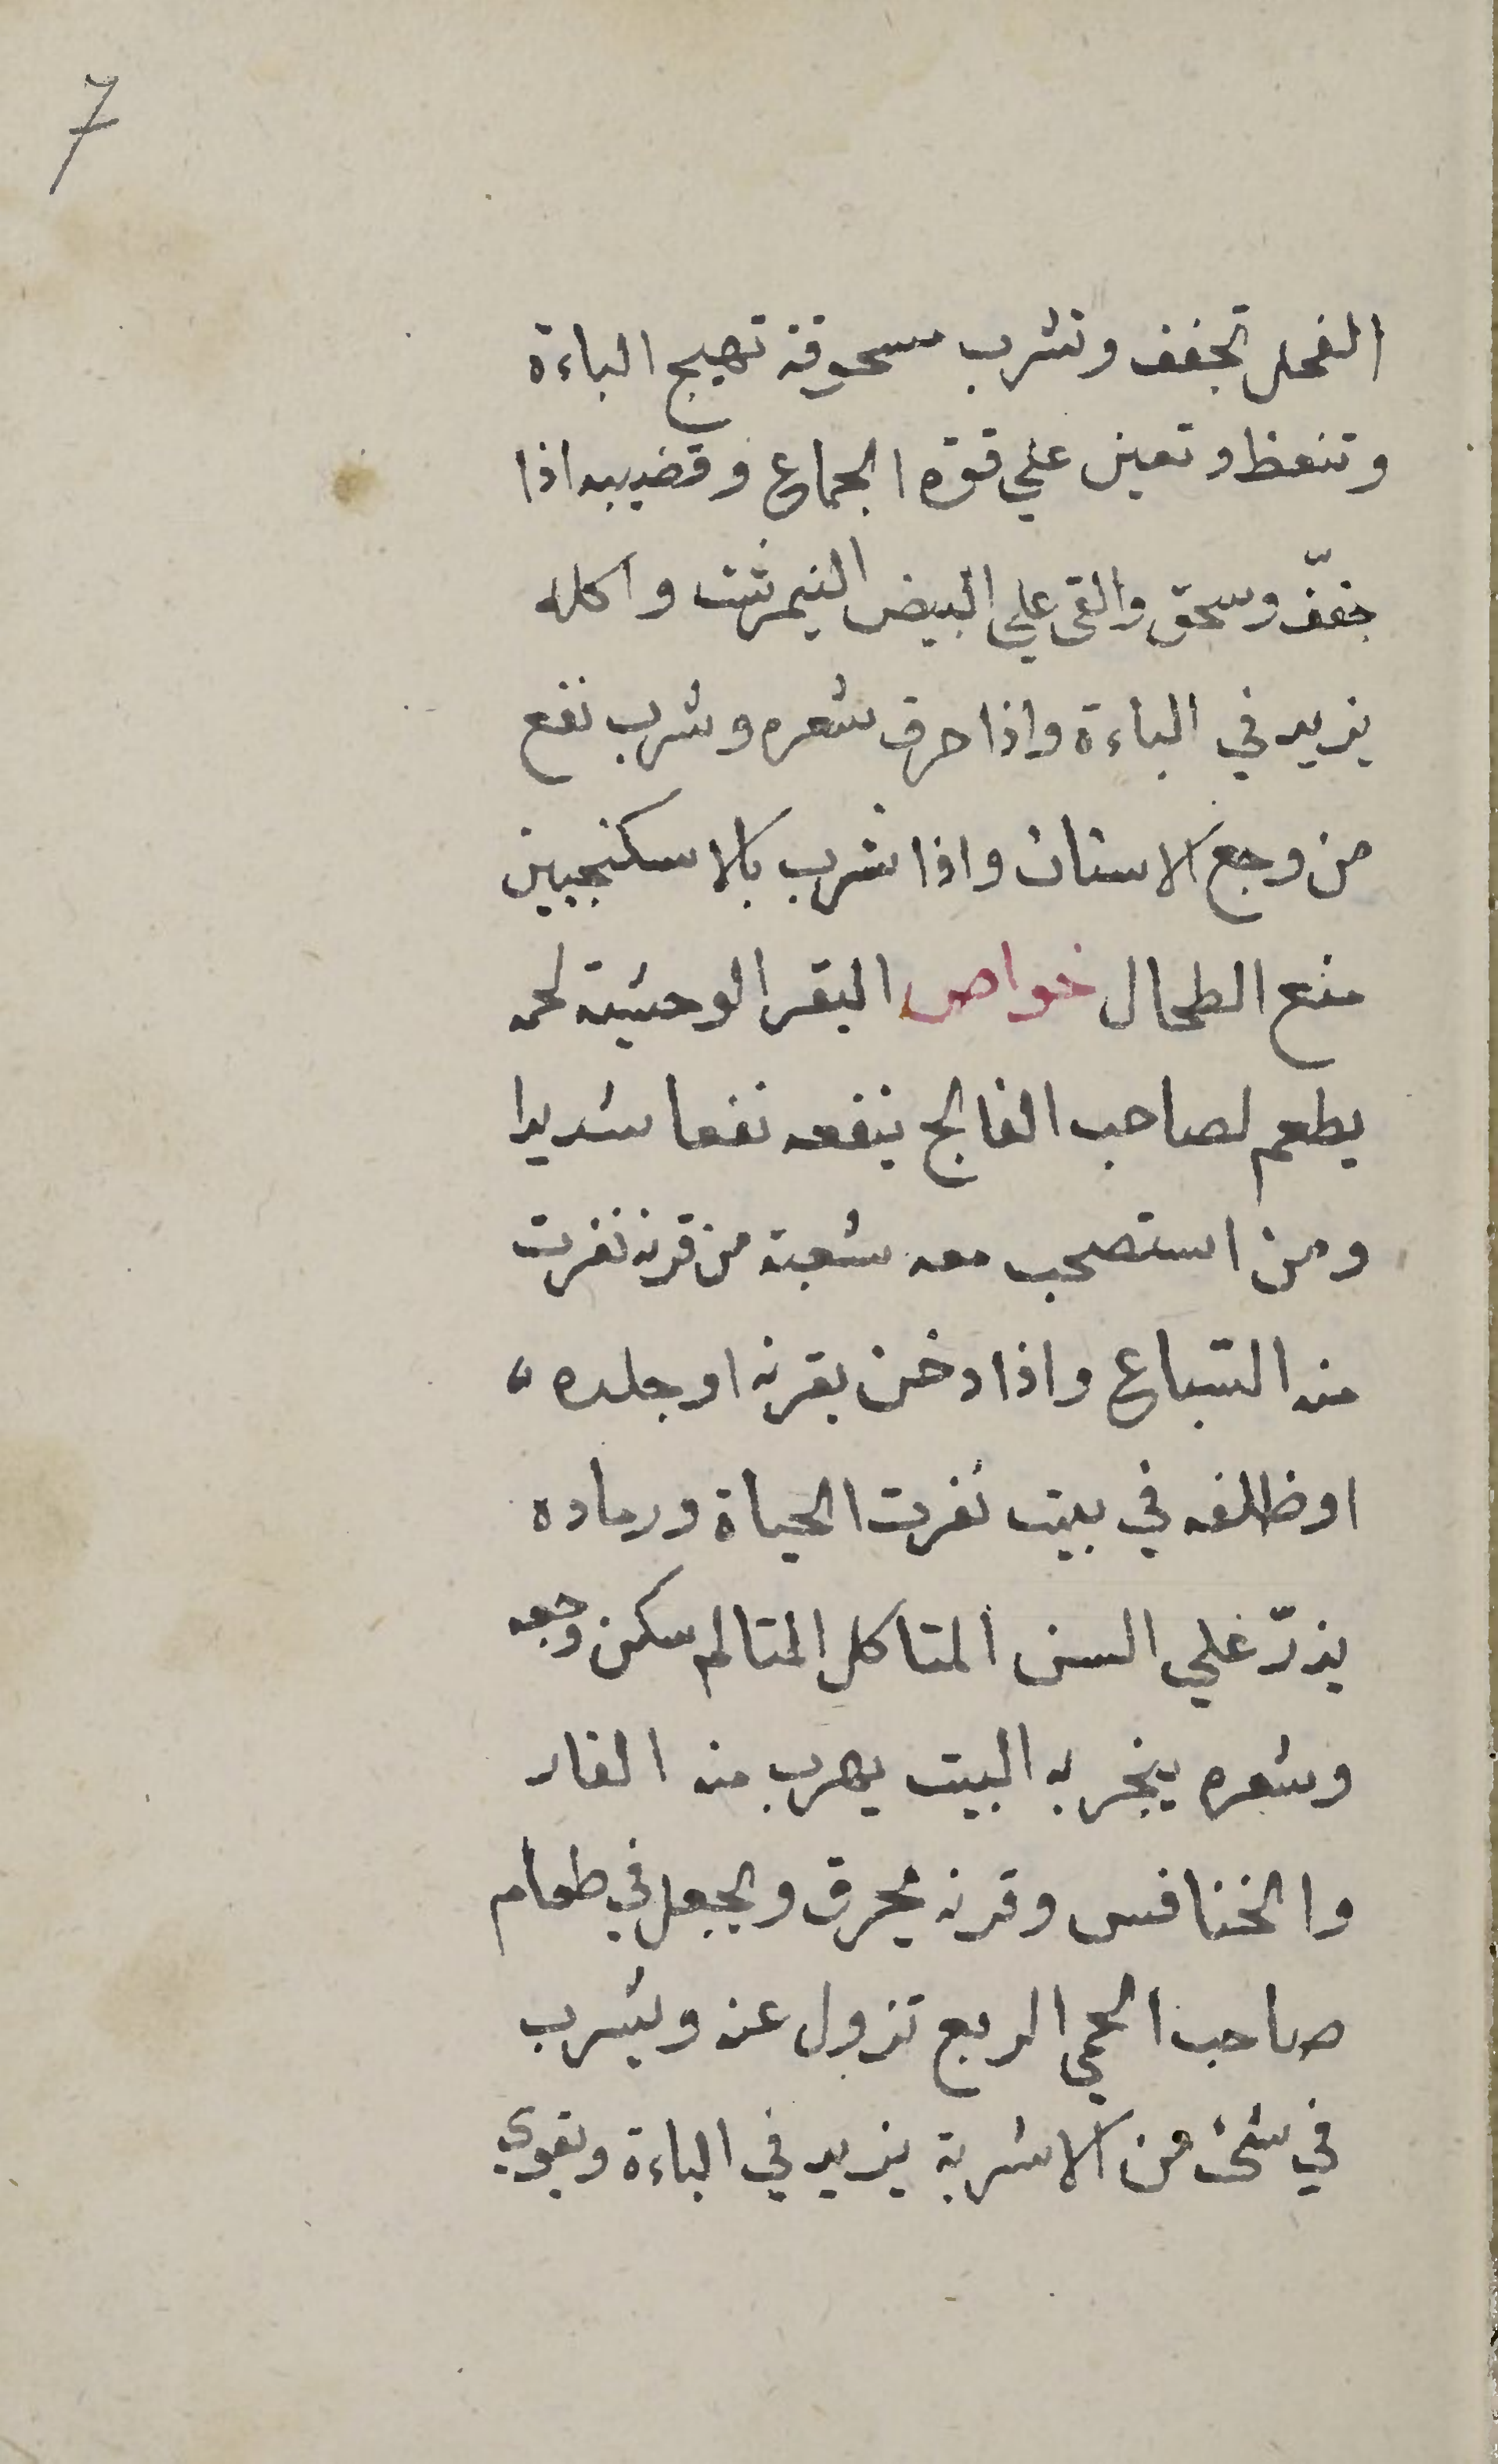 7
الفحل تجفف وتشرب مسحوقة تهيج الباءة
وتنعظ وتعين علي قوة الجماع وقضيبه اذا
جفّف وسحق والقى علي البيض النيمرشت واكله
يزيد في الباءة واذا حرق شعره وشرب نفع
من وجع الاسنان واذا شرب بالاسكنجبين
منع الطحال خواص البقر الوحشية لحمه
يطعم لصاحب الفالج ينفعه نفعا شديدا
ومن استصحب معه شعبة من قرنه نفرت
منه السّباع واذا دخن بقرنه او جلده
او ظلفه في بيت نفرت الحياة ورماده
يذرّ علي السن المتاكل المتالم سكن وجعه
وشعره يبخر به البيت يهرب منه الفار
والخنافس وقرنه يحرق ويجعل في طعام
صاحب الحمي الربع تزول عنه ويشرب
في شئ من الاشربة يزيد في الباءة ويقوي